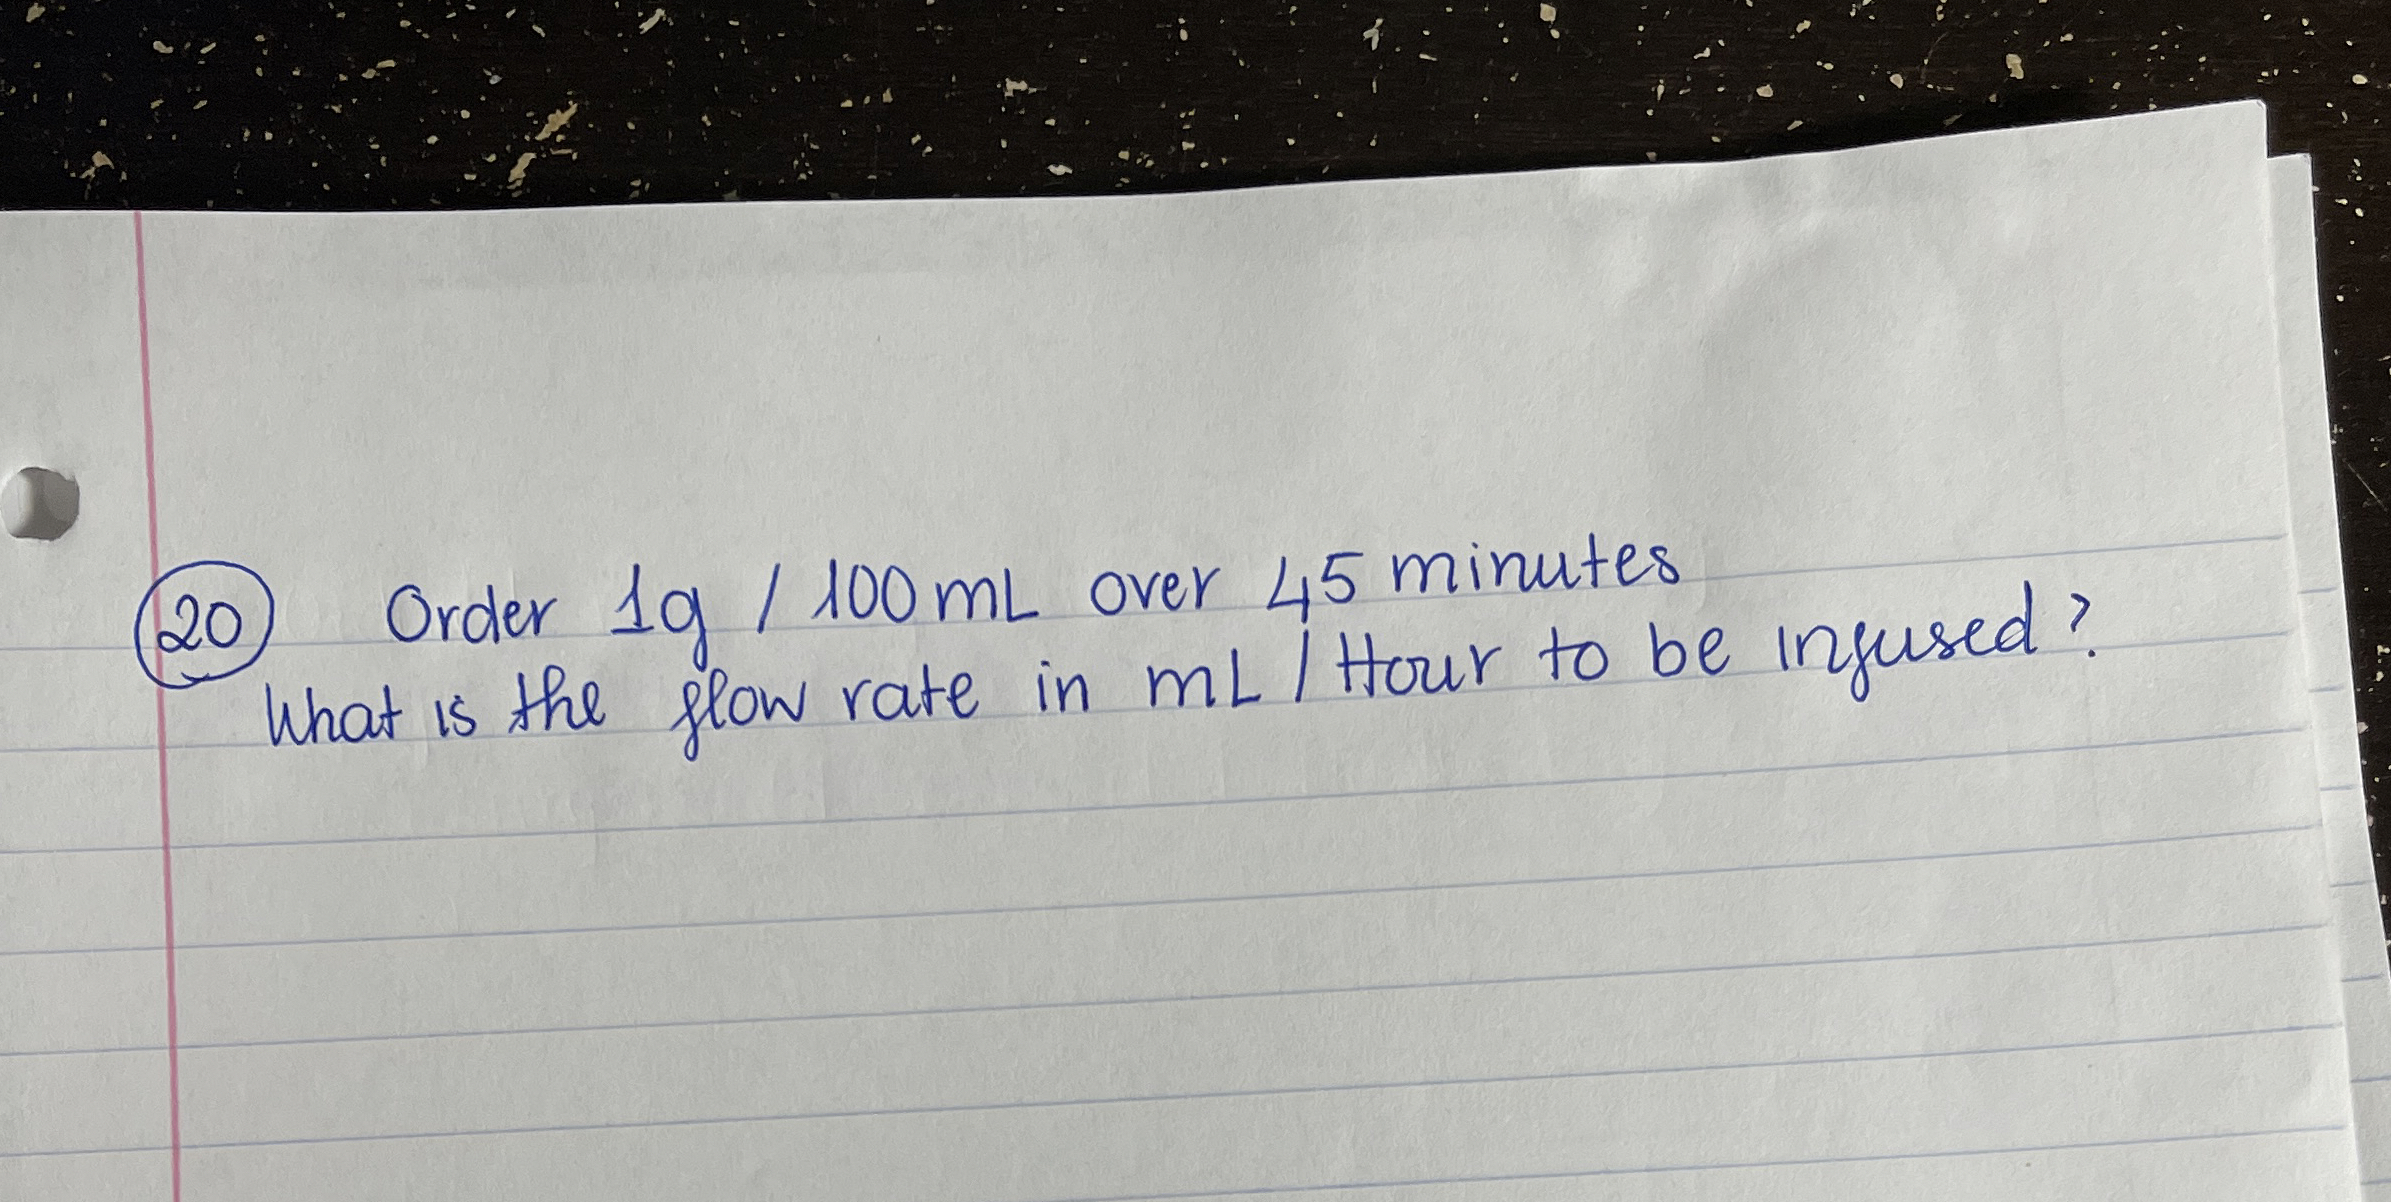 20 Order 1g / 100mL over 45 minutes
What is the flow rate in mL / Hour to be infused?